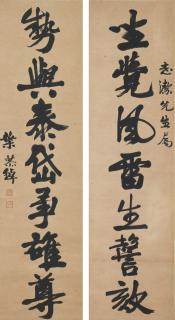 志潔先生屬
坐覺風雷生謦欬
勢與泰岱爭雄尊
葉恭綽